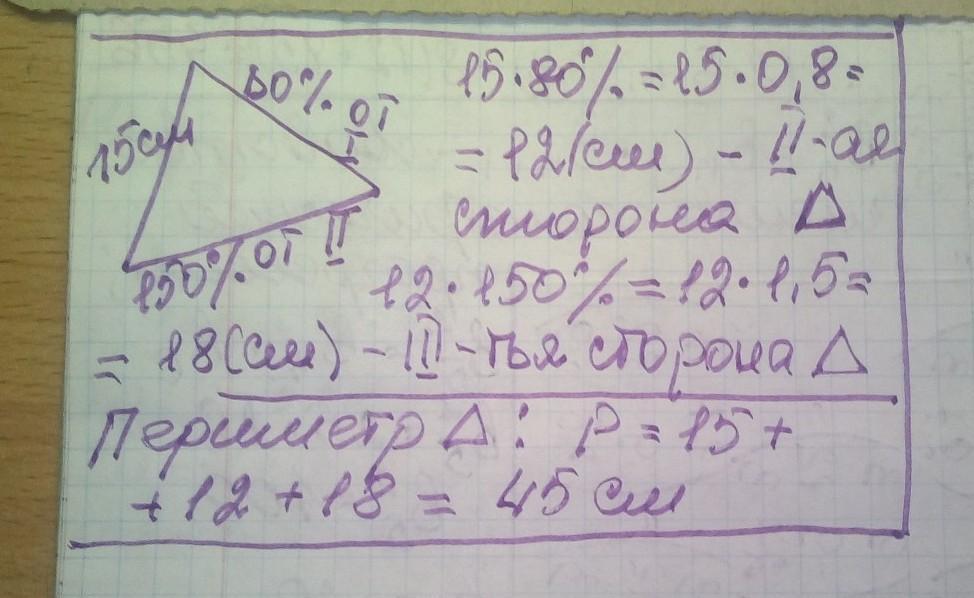 80% от
I
15см
150% от II
15·80% = 15·0,8=
= 12(см) - II-ая
сторона Δ
12·150% = 12·1,5=
= 18(см) - III-тья сторона Δ
Периметр Δ: P = 15+
+12+18 = 45 см